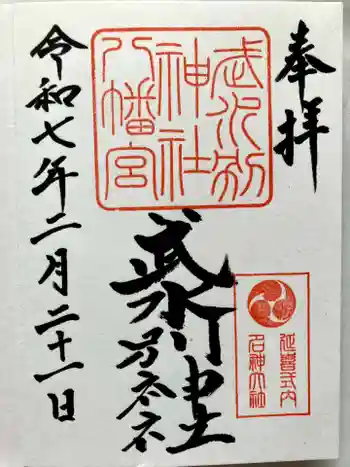 奉拝
武水別
神社
八幡宮
延喜式内
名神大社
武水別神社
令和七年二月二十一日